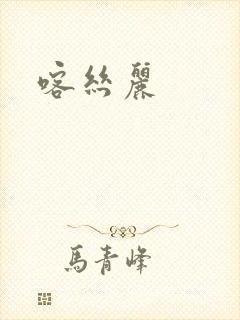 喀絲麗
馬青峰